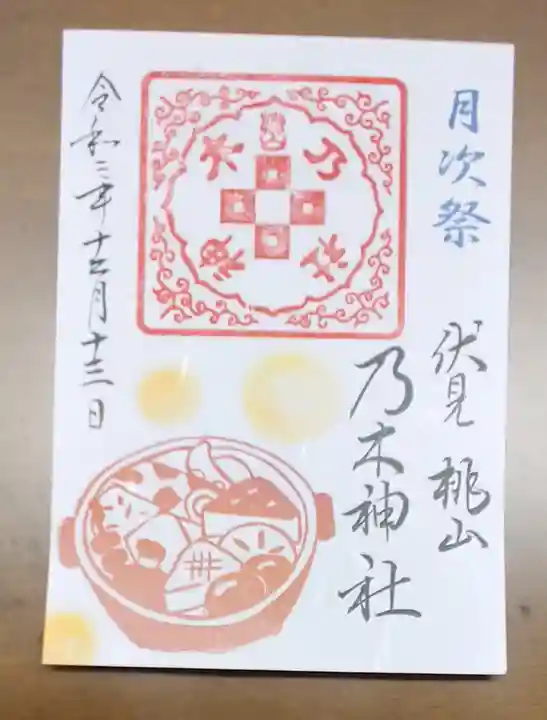 月次祭
伏見 桃山
乃木神社
乃木
令和二年十二月十三日